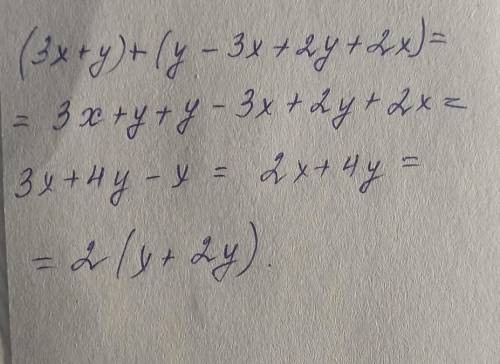 (3x+y)+(y-3x+2y+2x)=
= 3x+y+y-3x+2y+2x=
3x+4y-x = 2x+4y=
= 2(x+2y).